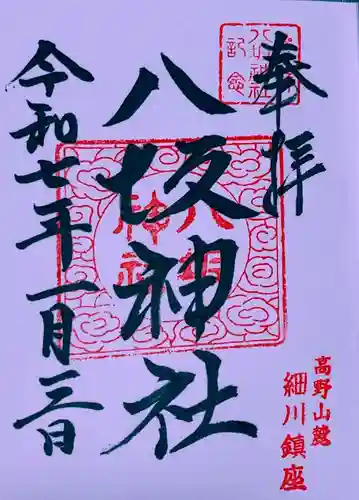 奉拝
八坂神社
令和七年一月三日
高野山麓
細川鎮座